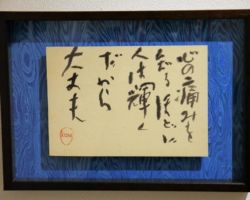 心の痛みを
知るほどに
人は輝く
だから
大丈夫